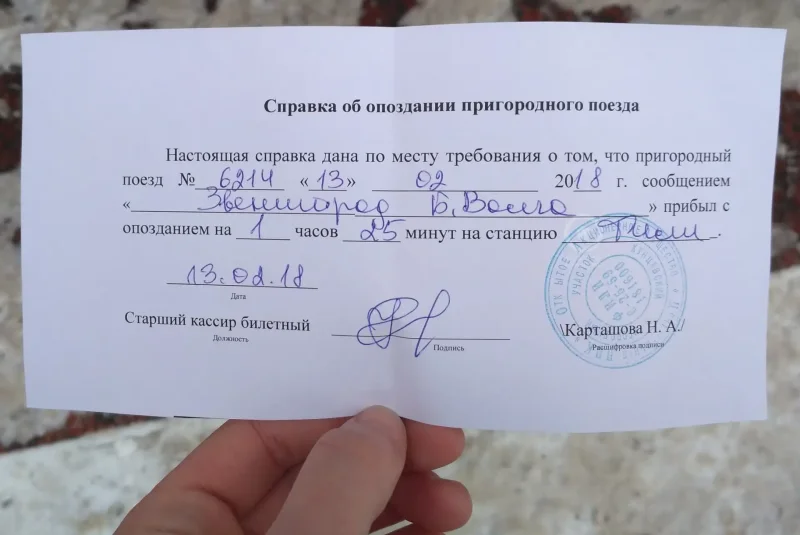 Справка об опоздании пригородного поезда
Настоящая справка дана по месту требования о том, что пригородный
поезд № 6214 «13» 02 2018 г. сообщением
«Звенигород Б, Волга» прибыл с
опозданием на 1 часов 25 минут на станцию .
13.02.18
Дата
Старший кассир билетный
\Карташова Н. А./
Должность
Подпись
Расшифровка подписи